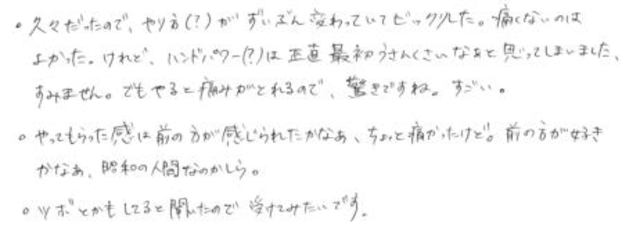 ・久々だったので、やり方(?)がずいぶん変わっていてビックリした。痛くないのは
よかった。けれど、ハンドパワー(?)は正直最初うさんくさいなぁと思ってしまいました、
すみません。でもやると痛みがとれるので、驚きですね。すごい。
・やってもらった感は前の方が感じられたかなあ、ちょっと痛かったけど。前の方が好き
かなあ、昭和の人間なのかしら。
・ツボとかもしてると聞いたので受けてみたいです。